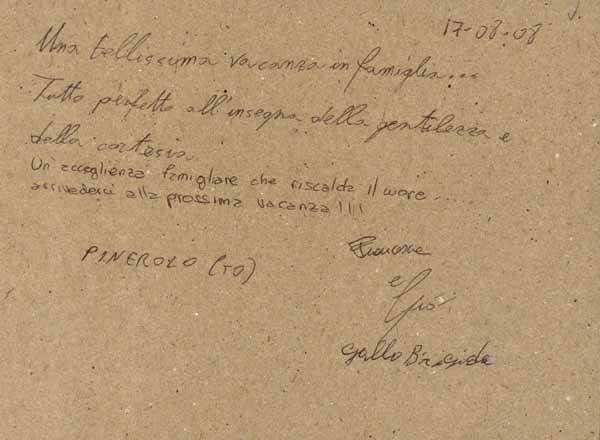 17-08-08
Una bellissima vacanza in famiglia...
Tutto perfetto all'insegna della gentilezza e
della cortesia.
Un'accoglienza famigliare che riscalda il cuore....
arrivederci alla prossima vacanza!!!
PINEROLO (TO)
e
Gallo Brigida